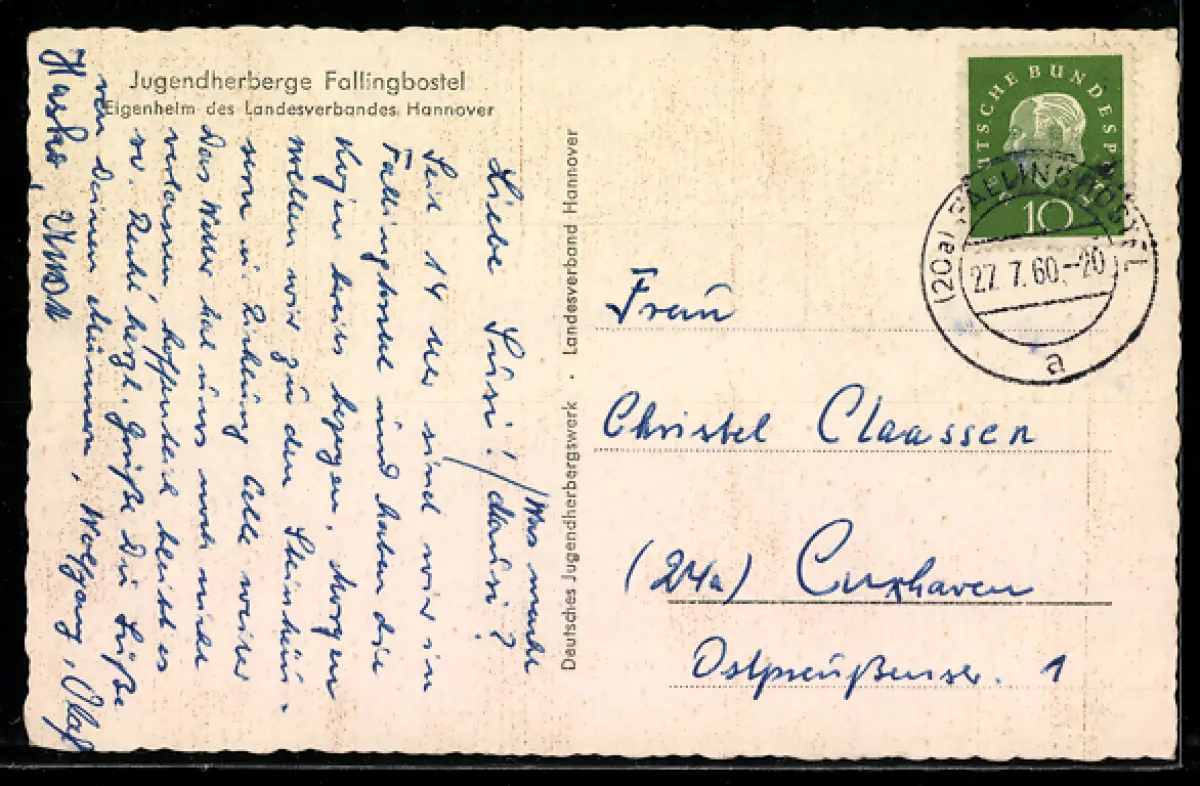 Jugendherberge Fallingbostel
Eigenheim des Landesverbandes Hannover
Liebe Süsi! / Was macht
dausi?
Seit 14 Uhr sind wir in
Fallingbostel und haben die
Kojen bereits bezogen. Morgen
wollen wir zu den Steinhäu-
sern in Richtung Celle weiter
Das Wetter hat uns noch nicht
verlassen, hoffentlich bleibt es
so. Recht herzl. Grüße Du Süße
von Deinen Männern, Wolfgang, Olaf
Deutsches Jugendherbergswerk · Landesverband Hannover
DEUTSCHE BUNDESPOST
10
(20a) FALLINGBOSTEL
27.7.60.-20
a
Frau
Christel Claassen
(24a) Cuxhaven
Ostpreußenstr. 1